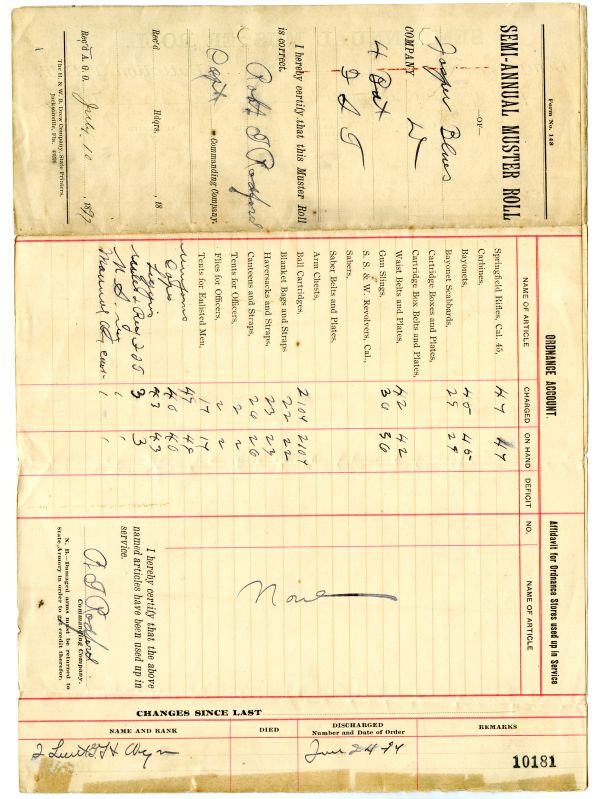 Form No. 148
SEMI-ANNUAL MUSTER ROLL
—OF—
Jasper Blues
COMPANY D
4 Bat
F S T
I hereby certify that this Muster Roll
is correct.
Robt I Rodford
Capt Commanding Company.
Rec'd Hdqrs. , 18
Rec'd A. G. O. July 10 , 1897
The H. & W. B. Drew Company, State Printers,
Jacksonville, Fla.
ORDNANCE ACCOUNT.
NAME OF ARTICLE CHARGED ON HAND DEFICIT
Springfield Rifles, Cal. 45, 47 47
Carbines,
Bayonets, 45 45
Bayonet Scabbards, 29 29
Cartridge Boxes and Plates,
Cartridge Box Belts and Plates,
Waist Belts and Plates, 42 42
Gun Slings, 30 30
S. & W. Revolvers, Cal.,
Sabers,
Saber Belts and Plates,
Arm Chests,
Ball Cartridges, 2104 2104
Blanket Bags and Straps 22 22
Haversacks and Straps, 23 23
Canteens and Straps, 26 26
Tents for Officers, 2 2
Flies for Officers, 2 2
Tents for Enlisted Men, 17 17
49 49
Caps 40 40
Leggins 43 43
3 3
1 1
Manual 1 1
Affidavit for Ordnance Stores used up in Service
NO. NAME OF ARTICLE
None
I hereby certify that the above
named articles have been used up in
service.
Commanding Company.
N. B.—Damaged arms must be returned to
State Armory in order to get credit therefor.
CHANGES SINCE LAST
NAME AND RANK DIED DISCHARGED
Number and Date of Order REMARKS
2 Lieut
10181